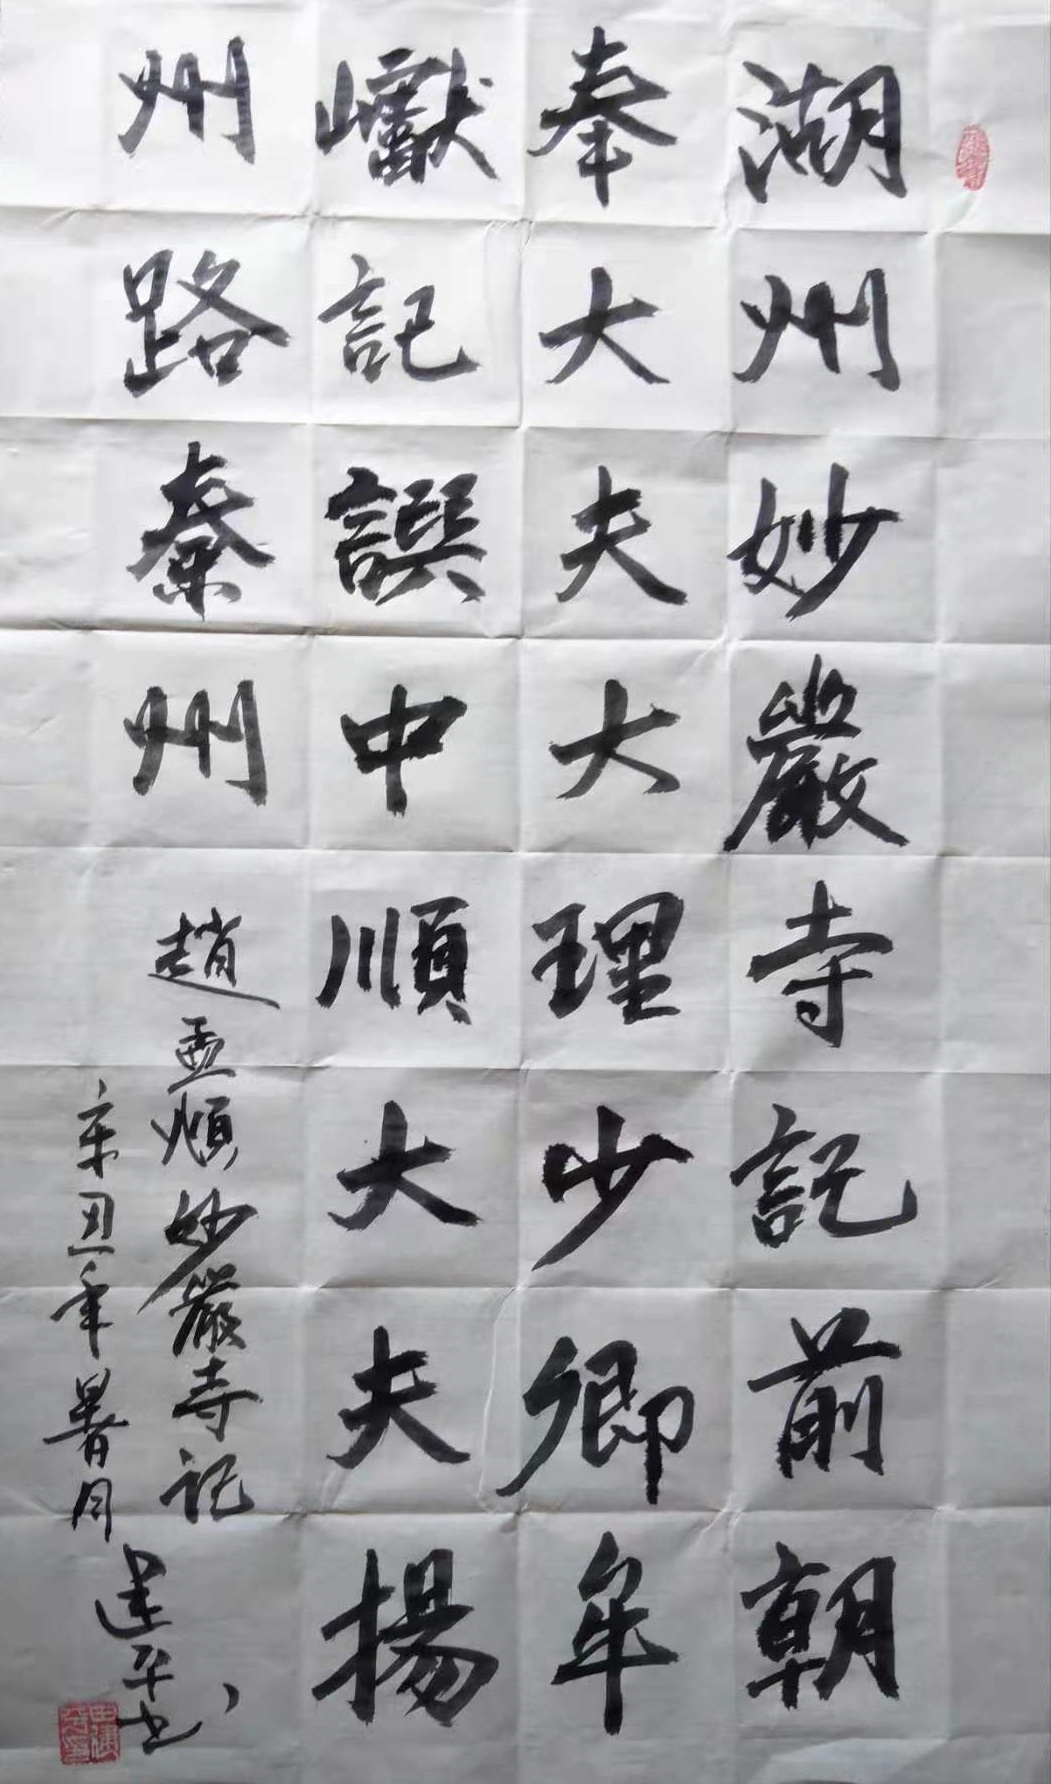 湖州妙嚴寺記前朝
奉大夫大理少卿牟
巘記譔中順大夫揚
州路秦州
趙孟順妙嚴寺記
辛丑年暑月
建平書